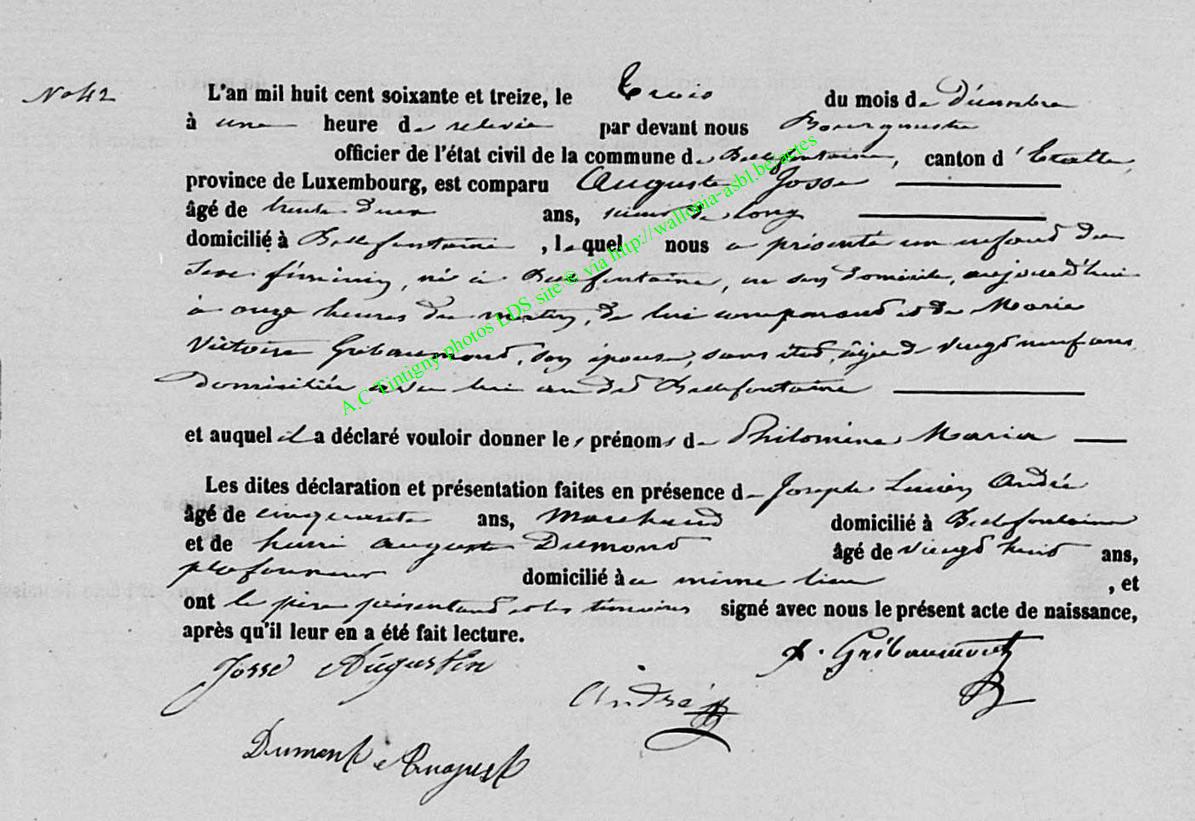 No 42
L'an mil huit cent soixante et treize, le trois du mois de Décembre
à une heure de relevée par devant nous Bourgmestre
officier de l'état civil de la commune de Bellefontaine, canton d'Etalle,
province de Luxembourg, est comparu Auguste Josse
âgé de trente deux ans, scieur de long
domicilié à Bellefontaine, lequel nous a présenté un enfand du
sexe féminin, né à Bellefontaine, en son domicile, aujourd'hui
à onze heures du matin, de lui comparand et de Marie
Victoire Gribaumond, son épouse, sans état, âgée de vingd neuf ans
domiciliée avec lui au dit Bellefontaine
et auquel il a déclaré vouloir donner les prénoms de Philomène Maria
Les dites déclaration et présentation faites en présence de Joseph Lucien André
âgé de cinquante ans, Marchand domicilié à Bellefontaine
et de henri auguste Dumond âgé de vingd huid ans,
plafonneur domicilié à ce même lieu, et
ont le père présentand et les témoins signé avec nous le présent acte de naissance,
après qu'il leur en a été fait lecture.
Josse Augustin
A. Gribaumont
André
Dumont August
A.C Tintigny photos LDS site © via http://wallonia-asbl.be/actes